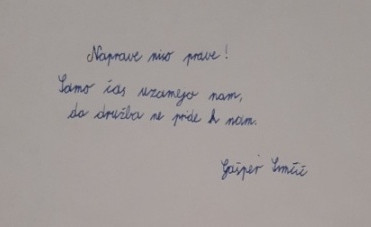 Naprave niso prave!
Samo čas vzamejo nam,
da družba ne pride k nam.
Gašper